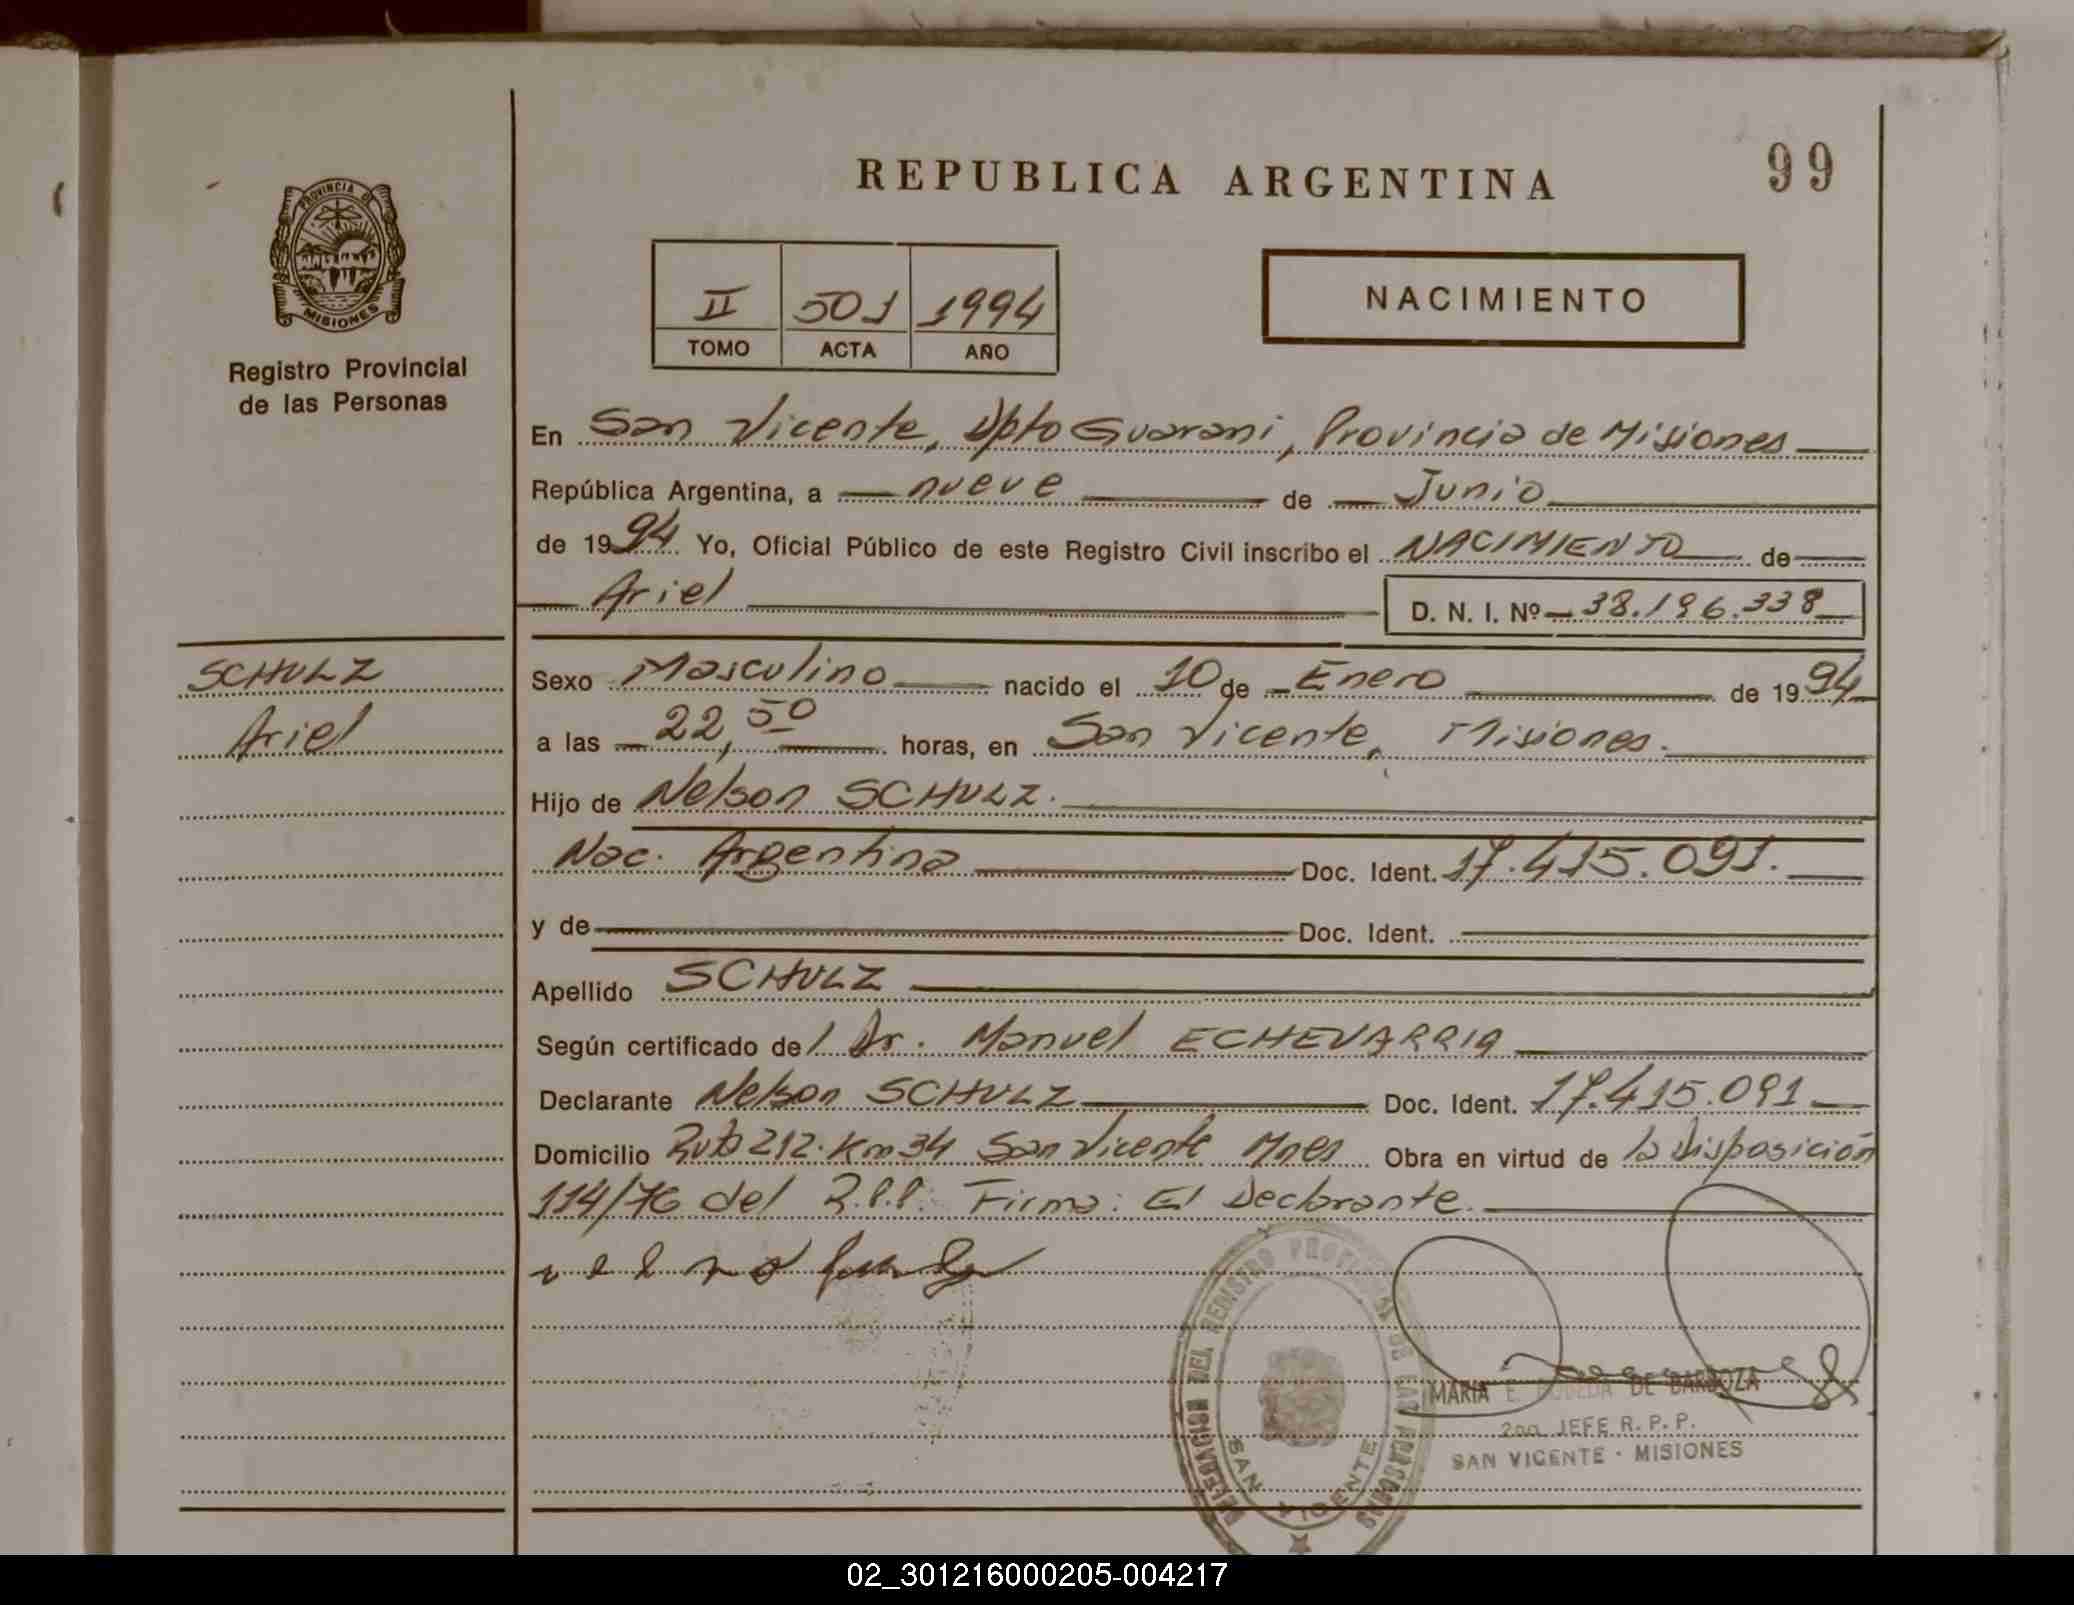 REPUBLICA ARGENTINA
99
PROVINCIA DE
MISIONES
Registro Provincial
de las Personas
II 501 1994
TOMO ACTA AÑO
NACIMIENTO
En San Vicente, Dpto Guarani, Provincia de Misiones
República Argentina, a nueve de Junio
de 1994 Yo, Oficial Público de este Registro Civil inscribo el NACIMIENTO de
Ariel D. N. I. Nº 38.196.338
SCHULZ
Ariel
Sexo Masculino nacido el 10 de Enero de 1994
a las 22,50 horas, en San Vicente, Misiones.
Hijo de Nelson SCHULZ.
Nac. Argentina Doc. Ident. 17.415.091.
y de Doc. Ident.
Apellido SCHULZ
Según certificado del Dr. Manuel ECHEVARRIA
Declarante Nelson SCHULZ Doc. Ident. 17.415.091
Domicilio Ruta 212. Km 34 San Vicente Mnes Obra en virtud de la Disposición
114/76 del R.P.P. Firma: El Declarante.
DELEGACION DEL REGISTRO PROVINCIAL DE LAS PERSONAS
SAN VICENTE
MARIA E. DE BARBOZA
2do JEFE R. P. P.
SAN VICENTE - MISIONES
02_301216000205-004217